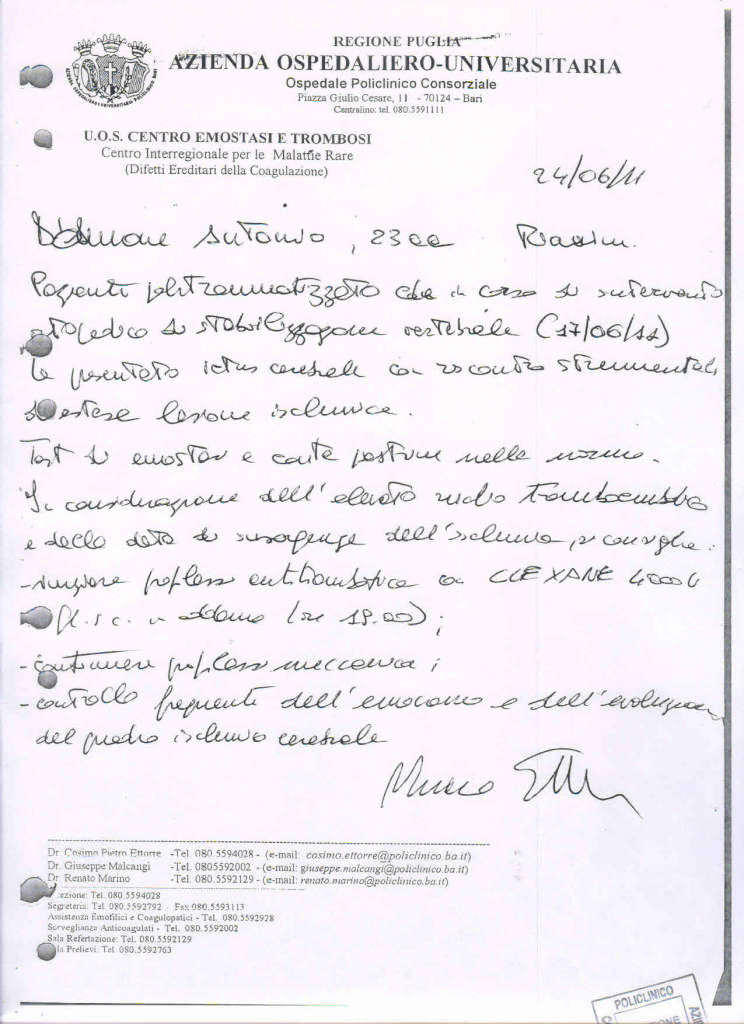 REGIONE PUGLIA
AZIENDA OSPEDALIERO-UNIVERSITARIA
Ospedale Policlinico Consorziale
Piazza Giulio Cesare, 11 - 70124 – Bari
Centralino: tel. 080.5591111
U.O.S. CENTRO EMOSTASI E TROMBOSI
Centro Interregionale per le Malattie Rare
(Difetti Ereditari della Coagulazione)
24/06/11
Antonio, 23 aa Rianim.
Paziente politraumatizzato che in corso di intervento
ortopedico di stabilizzazione vertebrale (17/06/11)
ha presentato ictus cerebrale con riscontro strumentale
di estesa lesione ischemica.
Test di emostasi e conta piastrine nella norma.
In considerazione dell'elevato rischio tromboembolico
e della data di insorgenza dell'ischemia, si consiglia:
- iniziare profilassi antitrombotica con CLEXANE 4000 U
fl. s.c. in addome (ore 18.00);
- continuare profilassi meccanica;
- controllo frequente dell'emocromo e dell'evoluzione
del quadro ischemico cerebrale
Dr. Cosimo Pietro Ettorre -Tel. 080.5594028 - (e-mail: cosimo.ettorre@policlinico.ba.it)
Dr. Giuseppe Malcangi -Tel. 0805592002 - (e-mail: giuseppe.malcangi@policlinico.ba.it)
Dr Renato Marino -Tel. 080.5592129 - (e-mail: renato.marino@policlinico.ba.it)
ezione: Tel. 080.5594028
Segreteria: Tel. 080.5592792 - Fax 080.5593113
Assistenza Emofilici e Coagulopatici - Tel. 080.5592928
Sorveglianza Anticoagulati - Tel. 080.5592002
Sala Refertazione: Tel. 080.5592129
la Prelievi: Tel. 080.5592763
POLICLINICO